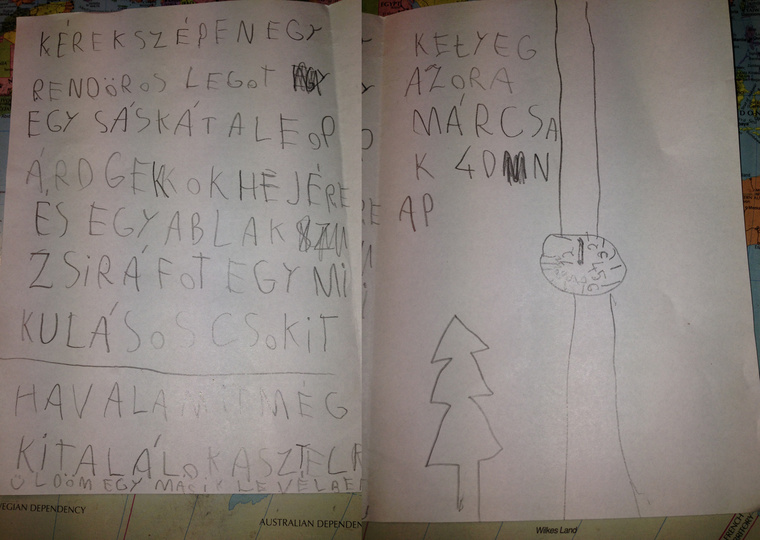 KÉREKSZÉPENEGY
RENDÖROS LEGOT
EGY SÁSKÁT A LEOP
ÁRDGEKKOKHEJÉRE
ÉS EGY ABLAK
ZSIRÁFOT EGY MI
KULÁSOS CSOKIT
HAVALAMIT MÉG
KITALÁLOKASZTELK
ÜLDÖM EGY MÁSIK LEVÉLBE
KETYEG
AZORA
MÁRCSA
K 40 N
AP
12 1 2 3 4 5 6
AUSTRALIAN DEPENDEN
EGIAN DEPENDENCY
Wilkes Land